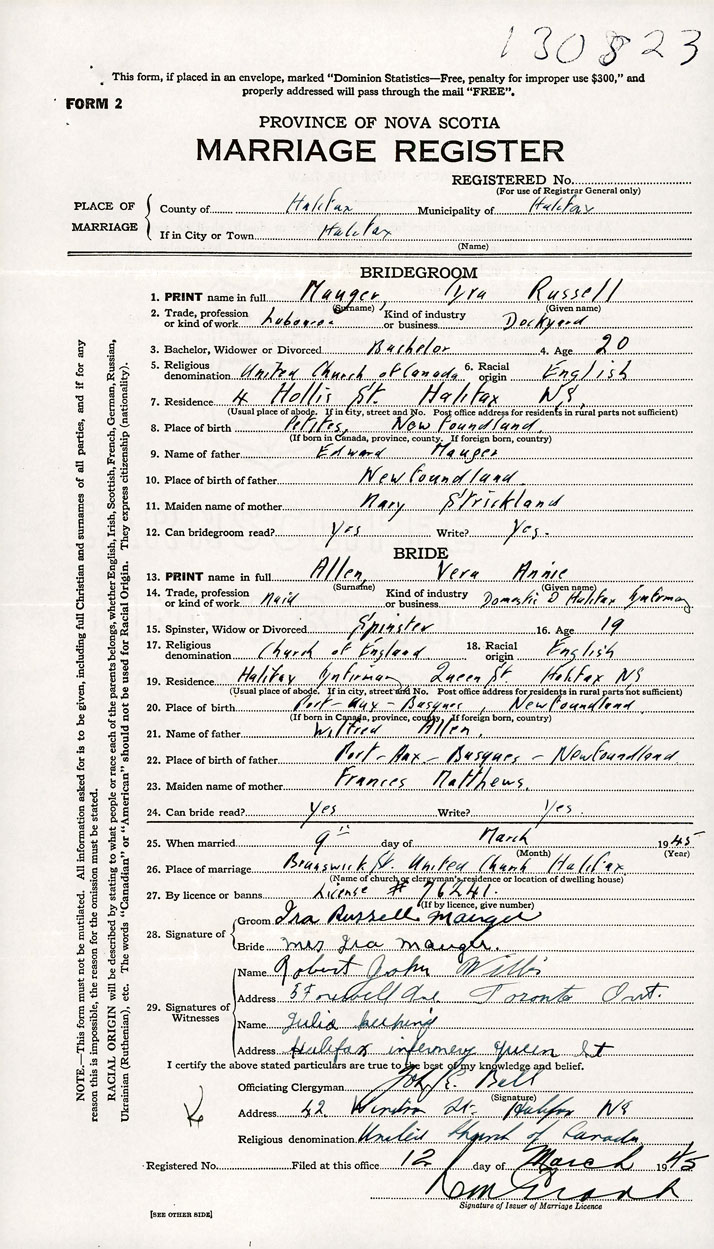 130823
This form, if placed in an envelope, marked "Dominion Statistics—Free, penalty for improper use $300," and
properly addressed will pass through the mail "FREE".
FORM 2
PROVINCE OF NOVA SCOTIA
MARRIAGE REGISTER
REGISTERED No.
(For use of Registrar General only)
PLACE OF MARRIAGE
County of Halifax Municipality of Halifax
If in City or Town Halifax
(Name)
BRIDEGROOM
1. PRINT name in full Mauger, Ira Russell
(Surname) (Given name)
2. Trade, profession or kind of work Labourer Kind of industry or business Dockyard
3. Bachelor, Widower or Divorced Bachelor 4. Age 20
5. Religious denomination United Church of Canada 6. Racial origin English
7. Residence 4 Hollis St. Halifax NS.
(Usual place of abode. If in city, street and No. Post office address for residents in rural parts not sufficient)
8. Place of birth Petites, Newfoundland.
(If born in Canada, province, county. If foreign born, country)
9. Name of father Edward Mauger
10. Place of birth of father Newfoundland.
11. Maiden name of mother Mary Strickland
12. Can bridegroom read? Yes Write? Yes.
BRIDE
13. PRINT name in full Allen, Vera Annie
(Surname) (Given name)
14. Trade, profession or kind of work Maid Kind of industry or business Domestic Halifax Infirmary
15. Spinster, Widow or Divorced Spinster 16. Age 19
17. Religious denomination Church of England 18. Racial origin English
19. Residence Halifax Infirmary Queen St Halifax NS
(Usual place of abode. If in city, street and No. Post office address for residents in rural parts not sufficient)
20. Place of birth Port-aux-Basques, Newfoundland
(If born in Canada, province, county. If foreign born, country)
21. Name of father Wilfred Allen.
22. Place of birth of father Port-Aux-Basques - Newfoundland
23. Maiden name of mother Frances Matthews.
24. Can bride read? Yes Write? Yes.
25. When married 9th day of March 1945
(Month) (Year)
26. Place of marriage Brunswick St. United Church Halifax
(Name of church or clergyman's residence or location of dwelling house)
27. By licence or banns License # 76241.
(If by licence, give number)
28. Signature of
Groom Ira Russell Mauger
Bride Mrs Ira Mauger.
29. Signatures of Witnesses
Name Robert John Willis
Address Ave Toronto Ont.
Name Julia
Address Halifax infermery queen St
I certify the above stated particulars are true to the best of my knowledge and belief.
Officiating Clergyman E. Bell
(Signature)
Address 42 Windsor St. Halifax NS
Religious denomination United Church of Canada
Registered No. Filed at this office 12 day of March 1945
Signature of Issuer of Marriage Licence
[SEE OTHER SIDE]
NOTE.—This form must not be mutilated. All information asked for is to be given, including full Christian and surnames of all parties, and if for any
reason this is impossible, the reason for the omission must be stated.
RACIAL ORIGIN will be described by stating to what people or race each of the parents belongs, whether English, Irish, Scottish, French, German, Russian,
Ukrainian (Ruthenian), etc. The words "Canadian" or "American" should not be used for Racial Origin. They express citizenship (nationality).